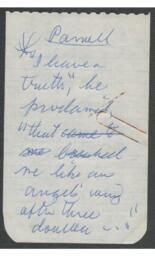 Parnell
"I have a
truth", he
proclaimed
"that came to
me
me like an
angel's wing
after three
..."